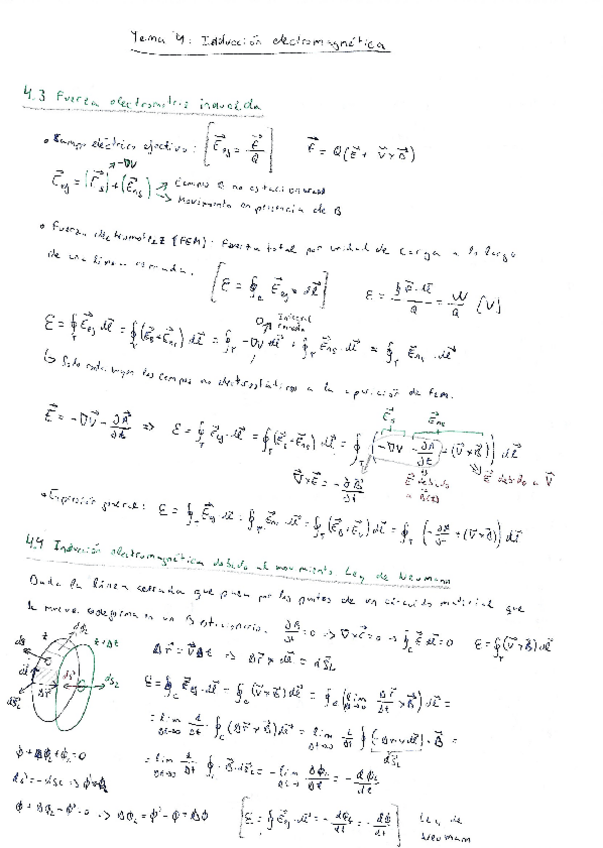 Tema 4: Inducción electromagnética
4.3 Fuerza electromotriz inducida
• Campo eléctrico efectivo: [E⃗ef = F⃗/Q]   F⃗ = Q(E⃗ + V⃗×B⃗)
-∇V
E⃗ef = (E⃗s) + (E⃗ns) Campo B no estacionario
Movimiento en presencia de B
• Fuerza electromotriz (FEM): Fuerza total por unidad de carga a lo largo
de una línea cerrada. [ε = ∮ E⃗ef · dl⃗]   ε = ∮F⃗·dl⃗/Q = W/Q [V]
0 Integral cerrada
ε = ∮ E⃗ef dl⃗ = ∮ (E⃗s + E⃗ns) dl⃗ = ∮ -∇V dl⃗ + ∮ E⃗ns · dl⃗ = ∮ E⃗ns · dl⃗
↳ Solo contribuyen los campos no electrostáticos a la aparición de fem.
E⃗s   E⃗ns
E⃗ = -∇V - ∂A⃗/∂t => ε = ∮ E⃗ef · dl⃗ = ∮ (E⃗s + E⃗ns) dl⃗ = ∮ (-∇V - ∂A/∂t + (V⃗×B⃗)) dl⃗
∇×E = -∂B⃗/∂t   E⃗ debido a B(t)   E⃗ debido a V⃗
• Expresión general: ε = ∮ E⃗ef dl = ∮ E⃗ns dl = ∮ (E⃗B + E⃗v) dl⃗ = ∮ (-∂A/∂t + (V⃗×B⃗)) dl⃗
4.4 Inducción electromagnética debido al movimiento Ley de Neumann
Dada la línea cerrada que pasa por los puntos de un circuito material que
se mueve en un B estacionario. ∂B/∂t = 0 => ∇×E = 0 => ∮ E⃗ dl = 0   ε = ∮ (V⃗×B⃗) dl
t   t+Δt   Δr⃗ = V⃗Δt => Δr⃗ × dl⃗ = dS⃗L
dS⃗L   dl⃗   Δr⃗   dS⃗'
ε = ∮ E⃗ef · dl = ∮ (V⃗×B⃗) dl⃗ = ∮ (lim Δt→0 Δr⃗/Δt × B⃗) dl⃗ =
= lim Δt→0 1/Δt · ∮ (Δr⃗ × B⃗) dl⃗ = lim Δt→0 -1/Δt ∮ (Δr⃗ × dl⃗) · B⃗ =
dS⃗L
= lim Δt→0 1/Δt ∮ - B⃗ · dS⃗L = - lim Δt→0 ΔΦL/Δt = - dΦL/dt
ϕ + ΔϕL + ϕ₁ = 0
ϕ + ΔϕL - ϕ' = 0 => ΔϕL = ϕ' - ϕ = Δϕ   [ε = ∮ E⃗ef dl⃗ = - dϕL/dt = - dϕ/dt] Ley de
Neumann